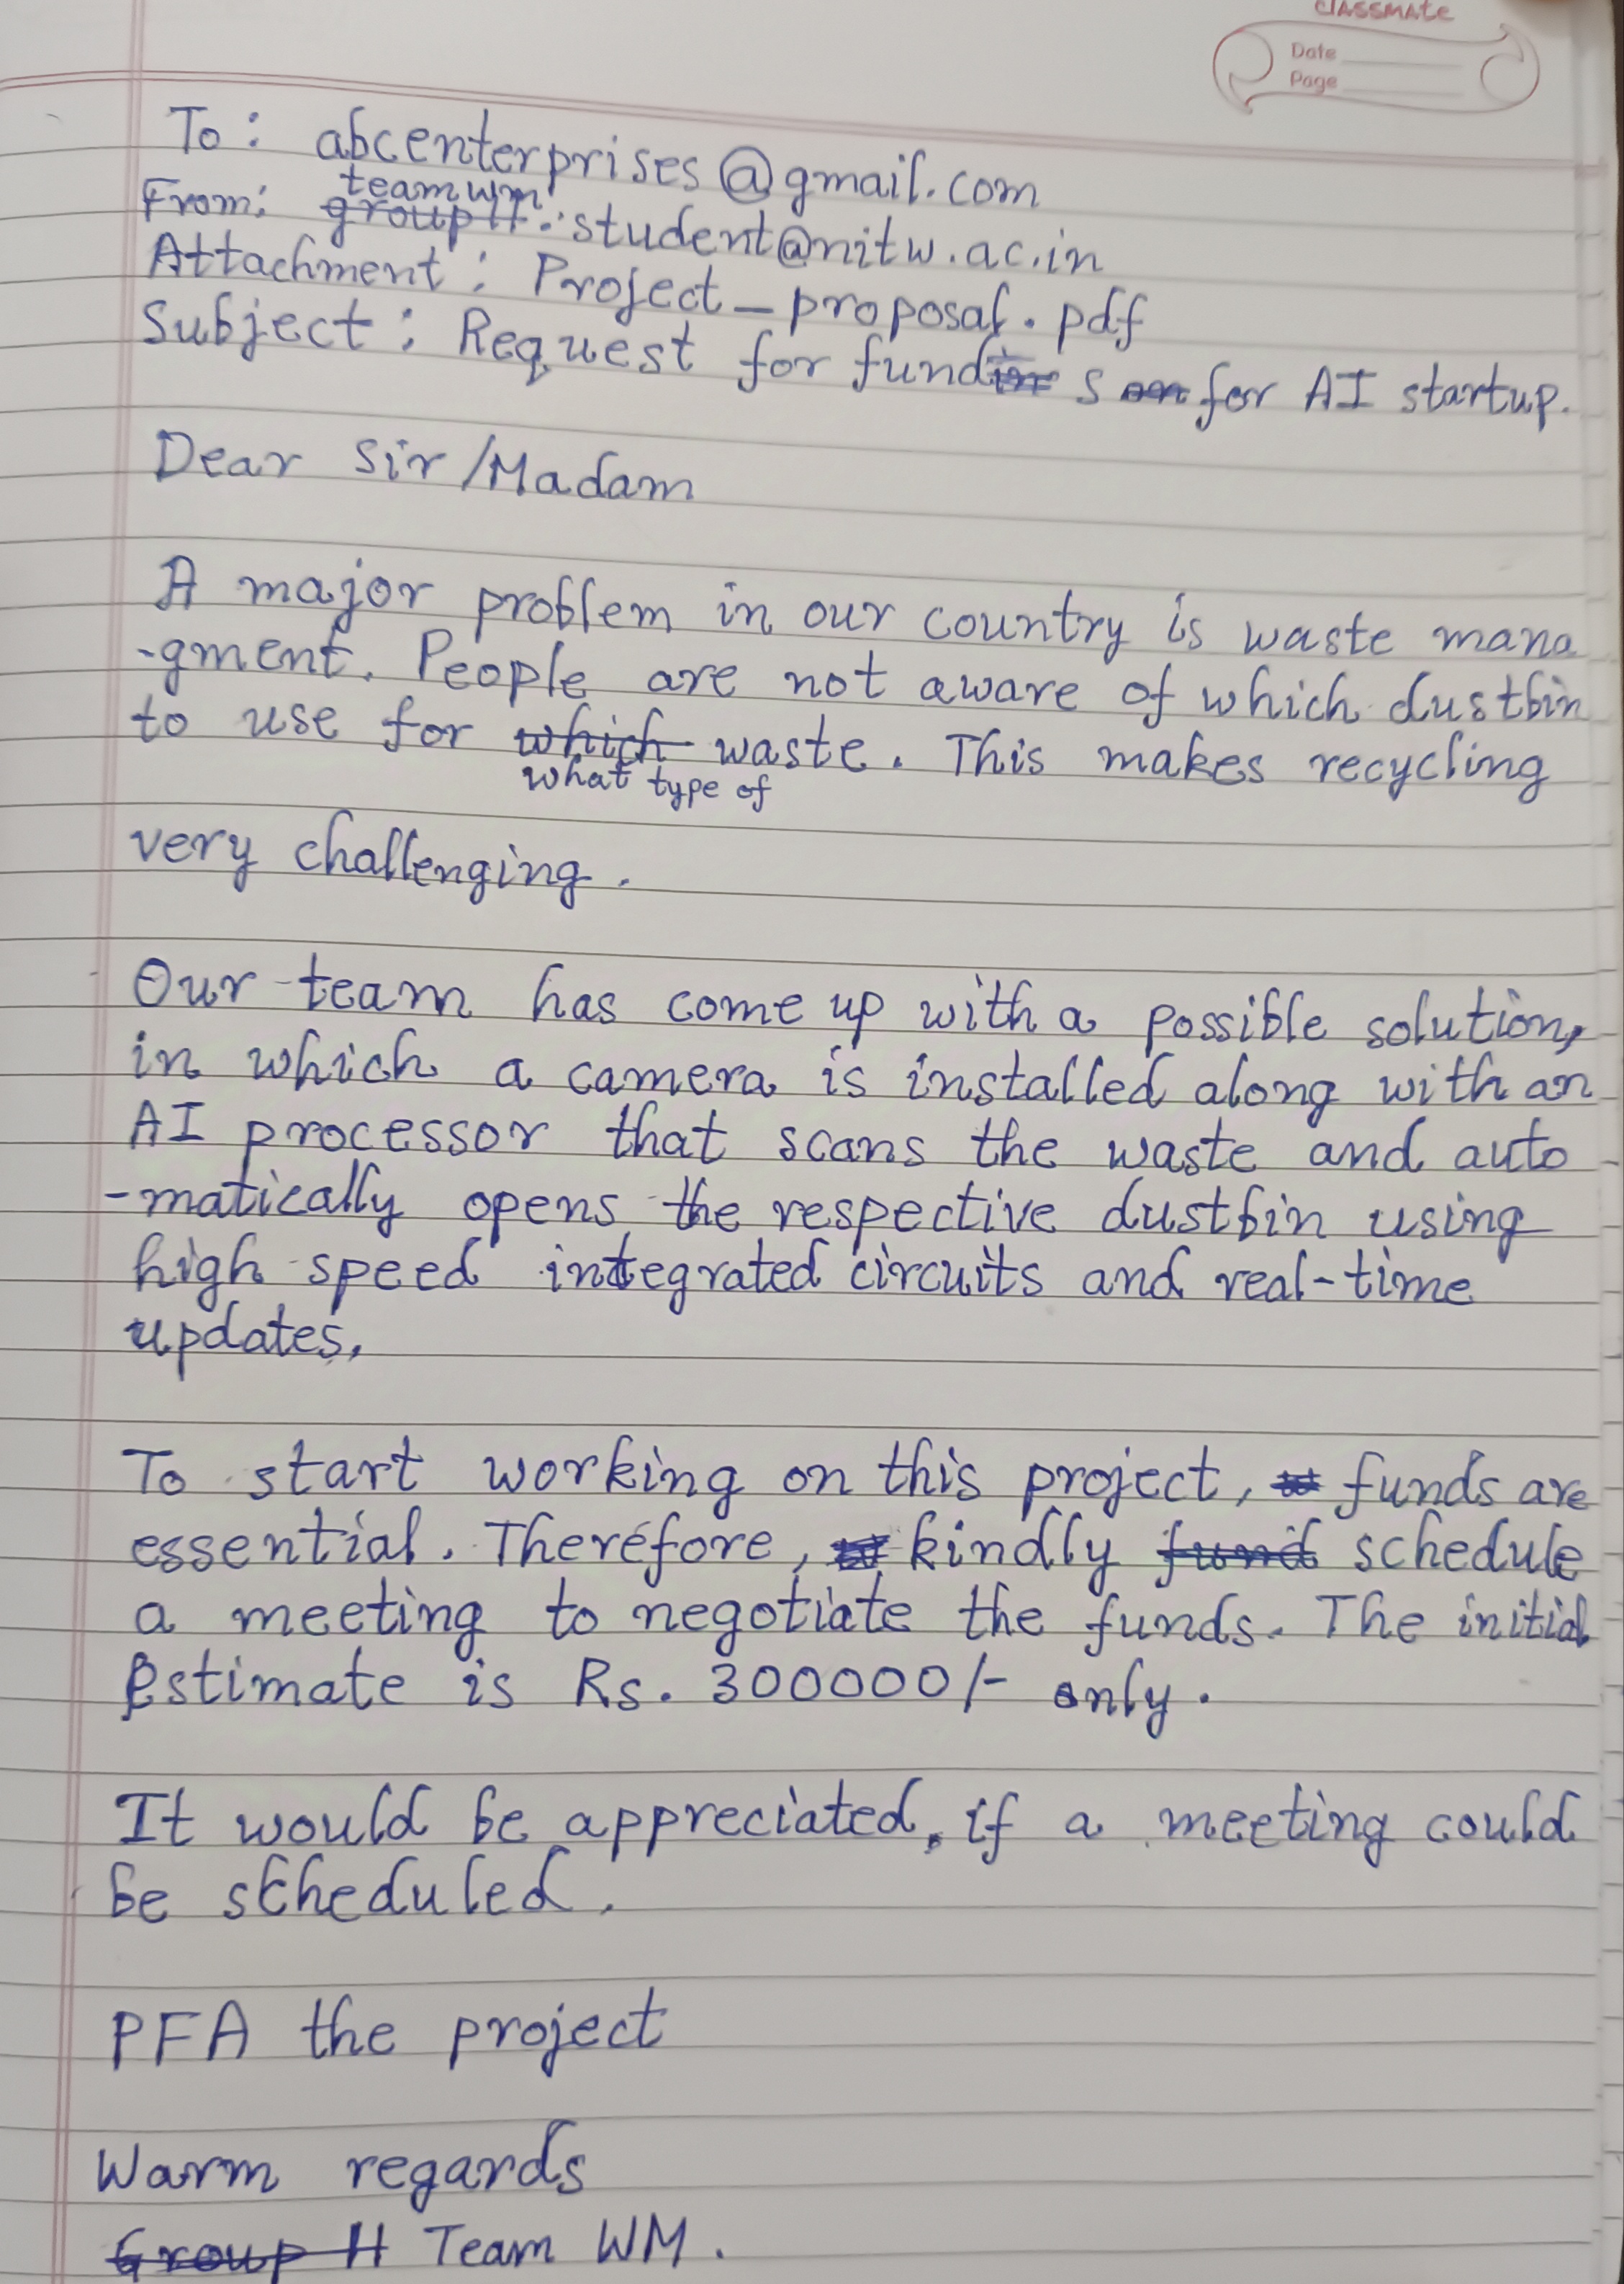 classmate
Date
Page
To: abcenterprises@gmail.com
teamwm
From: group H.student@nitw.ac.in
Attachment: Project_proposal.pdf
Subject: Request for funds for AI startup.
Dear Sir/Madam
A major problem in our country is waste mana
-gment. People are not aware of which dustbin
to use for which waste. This makes recycling
what type of
very challenging.
Our team has come up with a possible solution,
in which a camera is installed along with an
AI processor that scans the waste and auto
-matically opens the respective dustbin using
high speed integrated circuits and real-time
updates.
To start working on this project, funds are
essential. Therefore, kindly fund schedule
a meeting to negotiate the funds. The initial
Estimate is Rs. 300000/- only.
It would be appreciated, if a meeting could
be scheduled.
PFA the project
Warm regards
Group H Team WM.